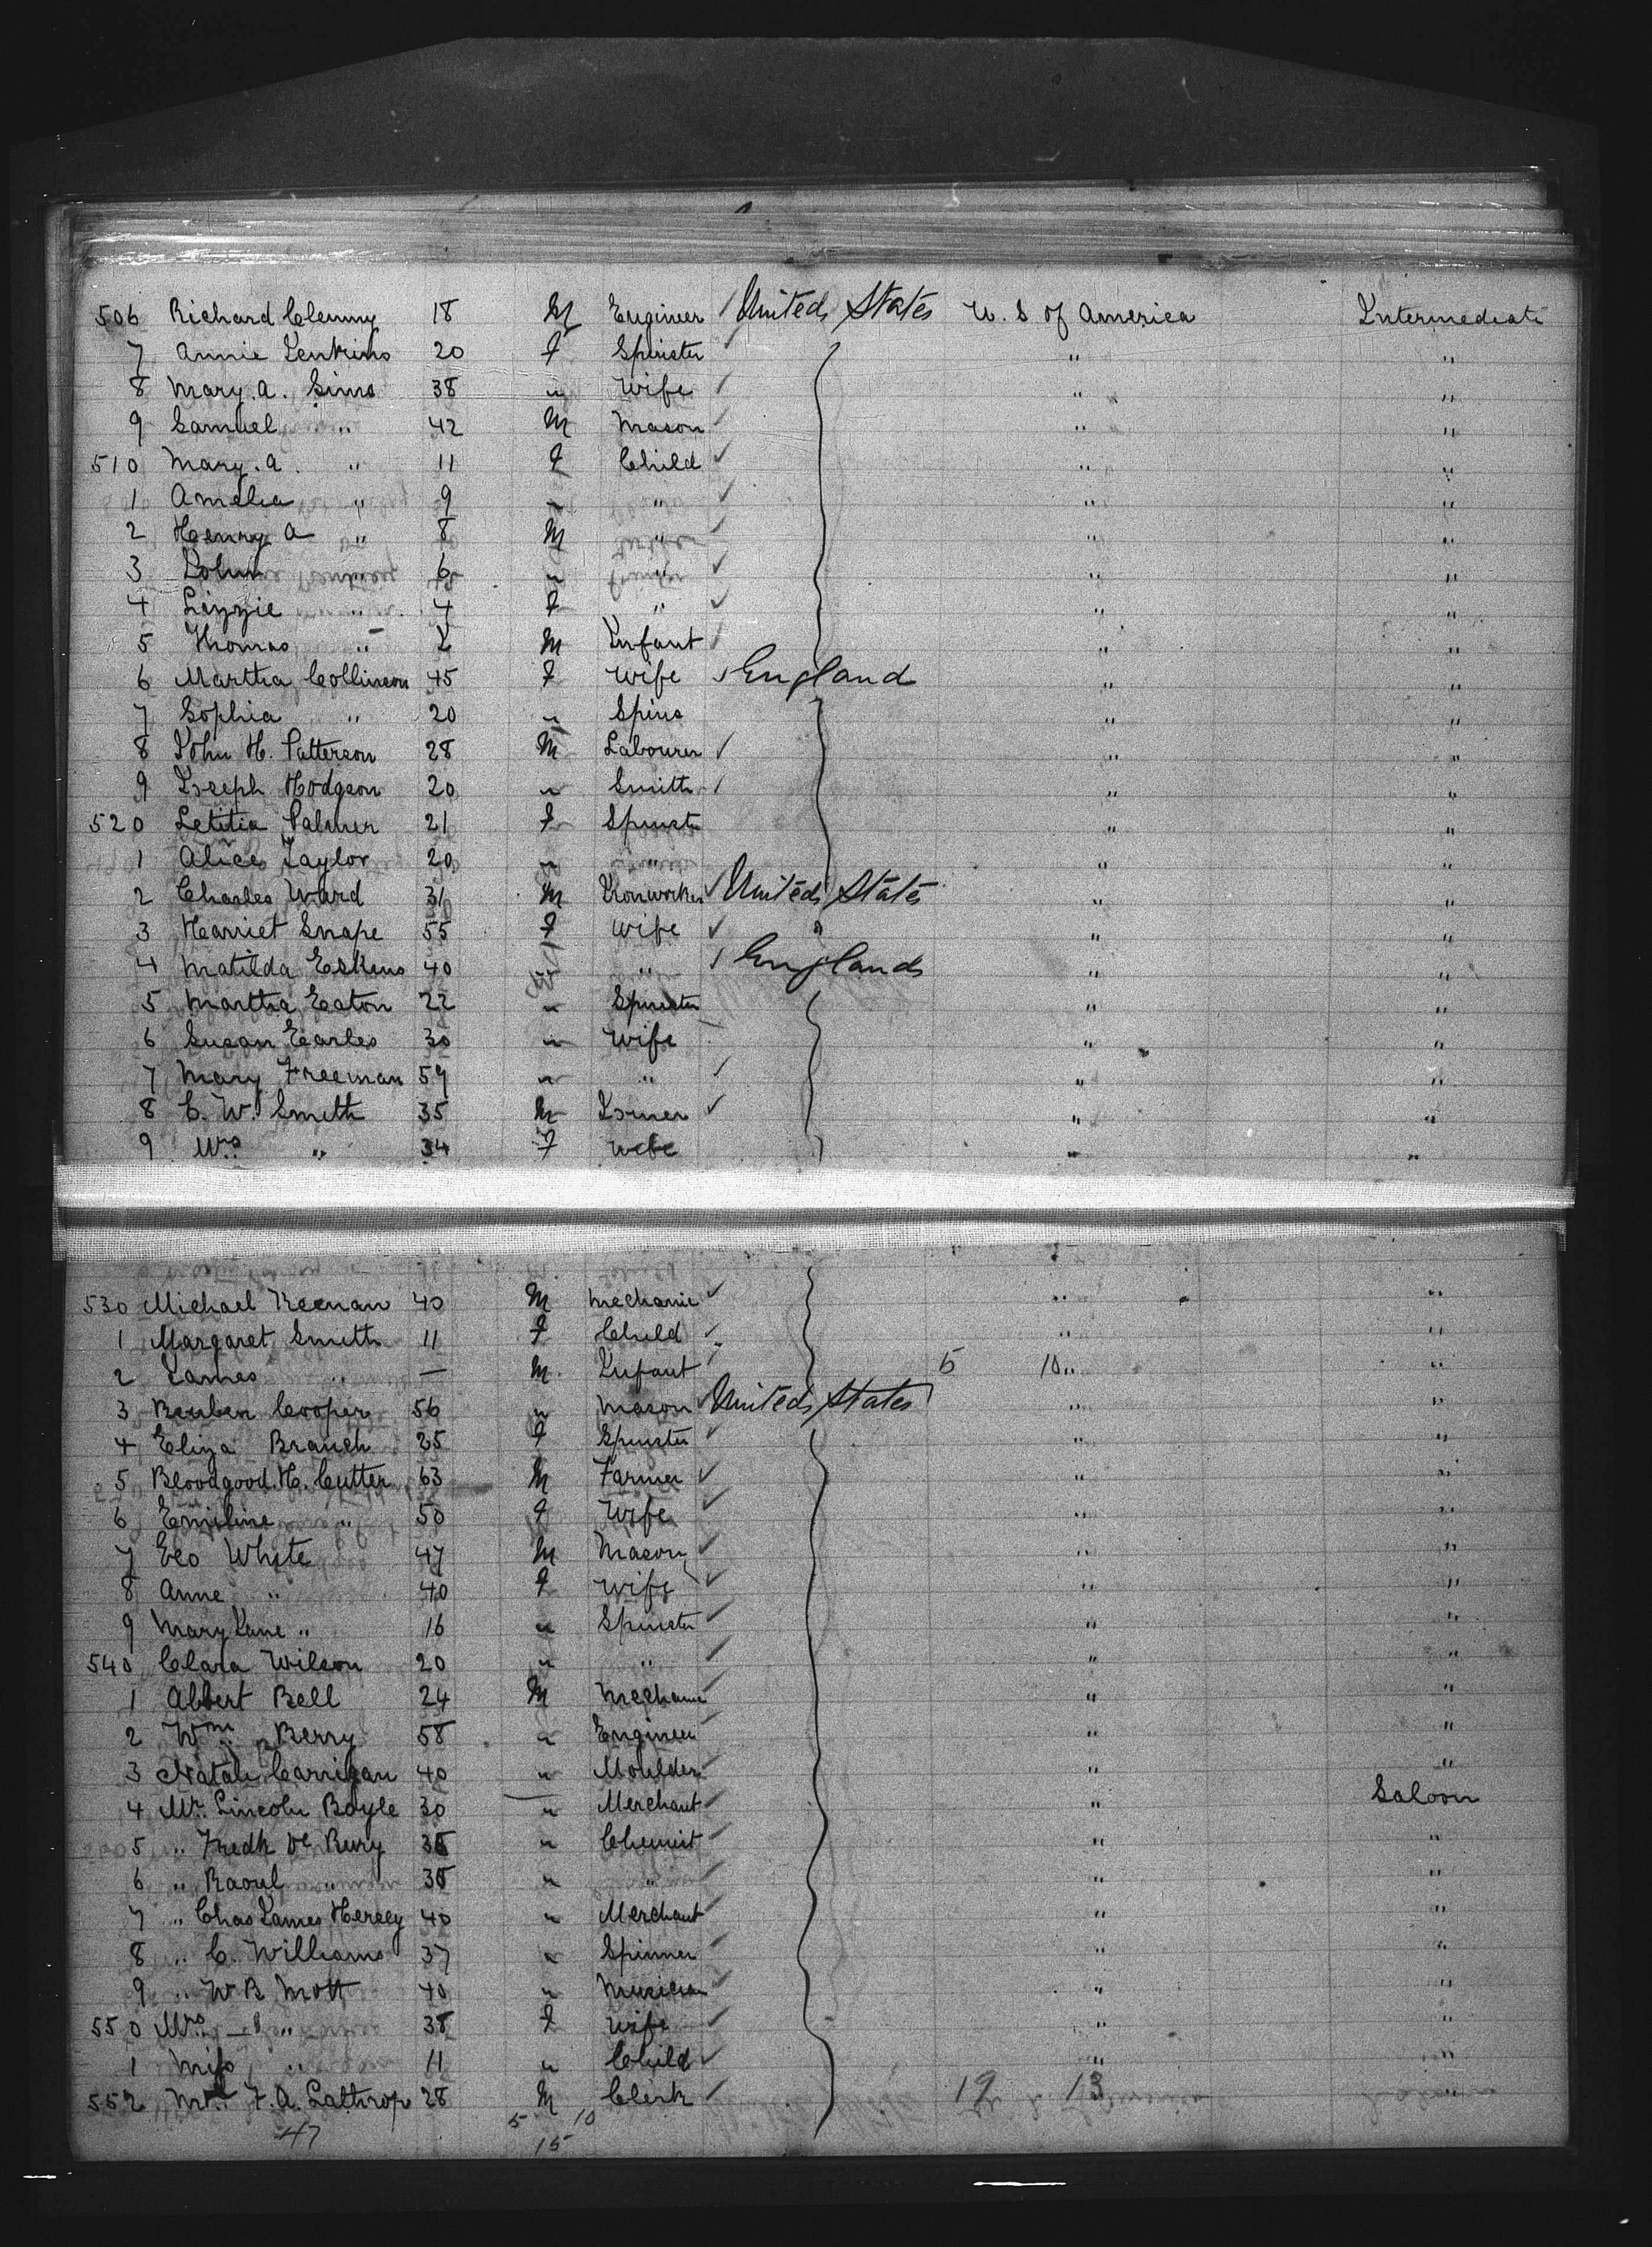 506 Richard Clemmy 18 M Engineer / United States U. S of America Intermediate
7 Annie Jenkins 20 F Spinster ✓ " "
8 Mary. A. Sims 38 " Wife / " "
9 Samuel " 42 M Mason ✓ " "
510 Mary. A. " 11 F Child ✓ " "
1 Amelia " 9 " " ✓ " "
2 Henry A " 8 M " ✓ " "
3 John " 6 " " ✓ " "
4 Lizzie " 4 F " ✓ " "
5 Thomas " 2 M Infant / " "
6 Martha Collinson 45 F Wife ✓ England " "
7 Sophia " 20 " Spins " "
8 John H. Patterson 28 M Labourer / " "
9 Joseph Hodgson 20 " Smith / " "
520 Letitia Palmer 21 F Spinst " "
1 Alice Taylor 20 " " " "
2 Charles Ward 31 M Ironworker ✓ United States " "
3 Harriet Snape 55 F Wife ✓ " " "
4 Matilda Eskens 40 " " / England " "
5 Martha Eaton 22 " Spinster " "
6 Susan Earles 30 " Wife " "
7 Mary Freeman 59 " " / " "
8 C. W. Smith 35 M Joiner ✓ " "
9 Mrs " 34 F Wife " "
530 Michael Keenan 40 M Mechanic ✓ " "
1 Margaret Smith 11 F Child ✓ " "
2 James " — M. Infant / 5 10 " "
3 Reuben Cooper 56 " Mason ✓ United States " "
4 Eliza Branch 25 F Spinster ✓ " "
5 Bloodgood. H. Cutter 63 M Farmer ✓ " "
6 Emiline " 50 F Wife ✓ " "
7 Geo White 47 M Mason ✓ " "
8 Anne " 40 F Wife ✓ " "
9 Mary Jane " 16 " Spinster ✓ " "
540 Clara Wilson 20 " " / " "
1 Albert Bell 24 M Mechanic / " "
2 Wm. Berry 58 " Engineer / " "
3 Carrigan 40 " Moulder / " "
4 Mr. Lincoln Boyle 30 " Merchant / " Saloon
5 " Fredk De Bury 35 " Chemist / " "
6 " Raoul " 35 " " / " "
7 " Chas James Hersey 40 " Merchant / " "
8 " C. Williams 37 " Spinner / " "
9 " W B Mott 40 " Musician / " "
550 Mrs — " 38 F Wife ✓ " "
1 Miss " 11 " Child ✓ " "
552 Mr. F. A. Lathrop 28 M Clerk ✓ 19 13 "
47 5 10
15